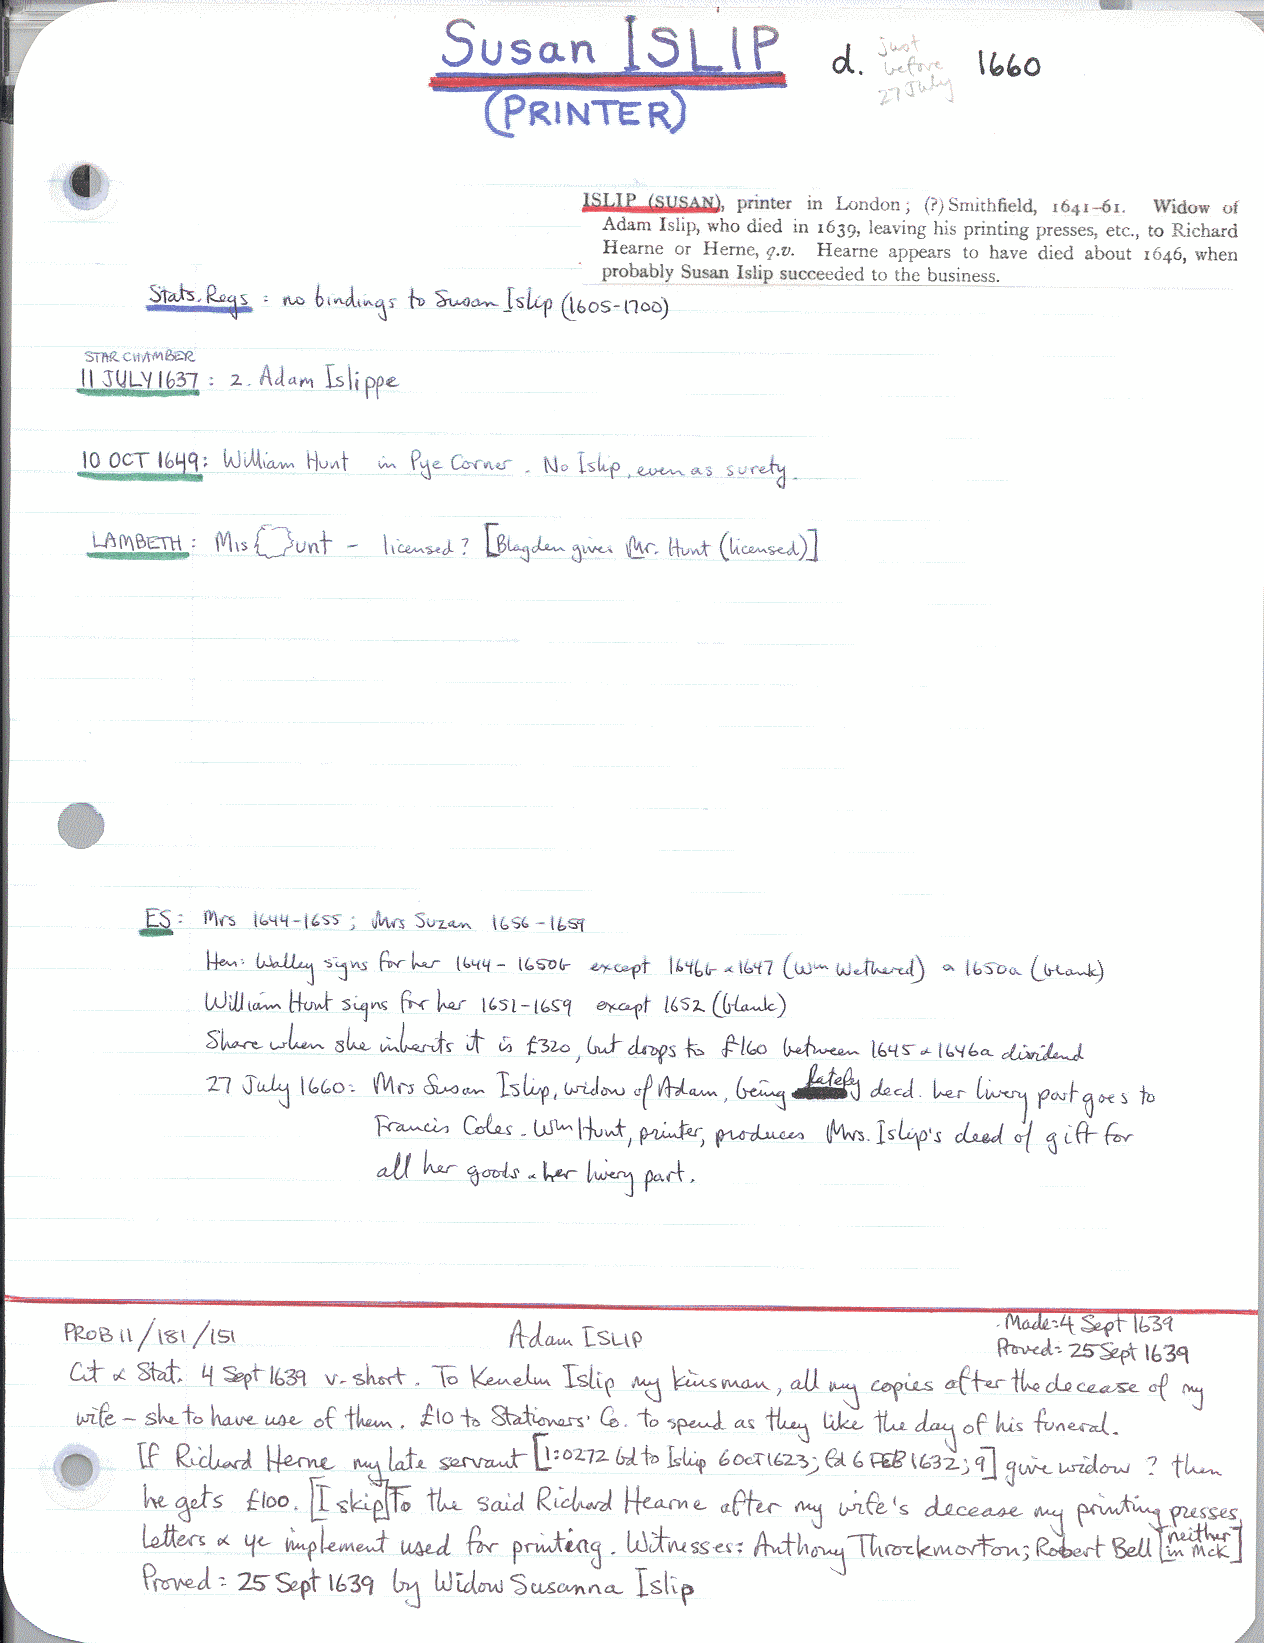 Susan ISLIP
(PRINTER)
d. just before 27 July 1660
ISLIP (SUSAN), printer in London; (?) Smithfield, 1641-61. Widow of
Adam Islip, who died in 1639, leaving his printing presses, etc., to Richard
Hearne or Herne, q.v. Hearne appears to have died about 1646, when
probably Susan Islip succeeded to the business.
Stats. Regs : no bindings to Susan Islip (1605-1700)
STAR CHAMBER
11 JULY 1637 : 2. Adam Islippe
10 OCT 1649: William Hunt in Pye Corner. No Islip, even as surety.
LAMBETH : Mis unt - licensed? [Blagden gives Mr. Hunt (licensed)]
ES: Mrs 1644-1655 ; Mrs Suzan 1656-1659
Hen: Walley signs for her 1644 - 1650b except 1646b & 1647 (Wm Wethered) & 1650a (blank)
William Hunt signs for her 1651-1659 except 1652 (blank)
Share when she inherits it is £320, but drops to £160 between 1645 & 1646a dividend
27 July 1660: Mrs Susan Islip, widow of Adam, being lately decd. her livery part goes to
Francis Coles. Wm Hunt, printer, produces Mrs. Islip's deed of gift for
all her goods & her livery part.
PROB 11/181/151 Adam ISLIP Made: 4 Sept 1639
Proved: 25 Sept 1639
Cit & Stat. 4 Sept 1639 v. short. To Kenelm Islip my kinsman, all my copies after the decease of my
wife - she to have use of them. £10 to Stationers' Co. to spend as they like the day of his funeral.
If Richard Herne my late servant [1:0272 bd to Islip 6 OCT 1623; fd 6 FEB 1632; 9] give widow ? then
he gets £100. [I skip] To the said Richard Hearne after my wife's decease my printing presses,
letters & ye implement used for printing. Witnesses: Anthony Throckmorton; Robert Bell [neither in McK]
Proved: 25 Sept 1639 by Widow Susanna Islip